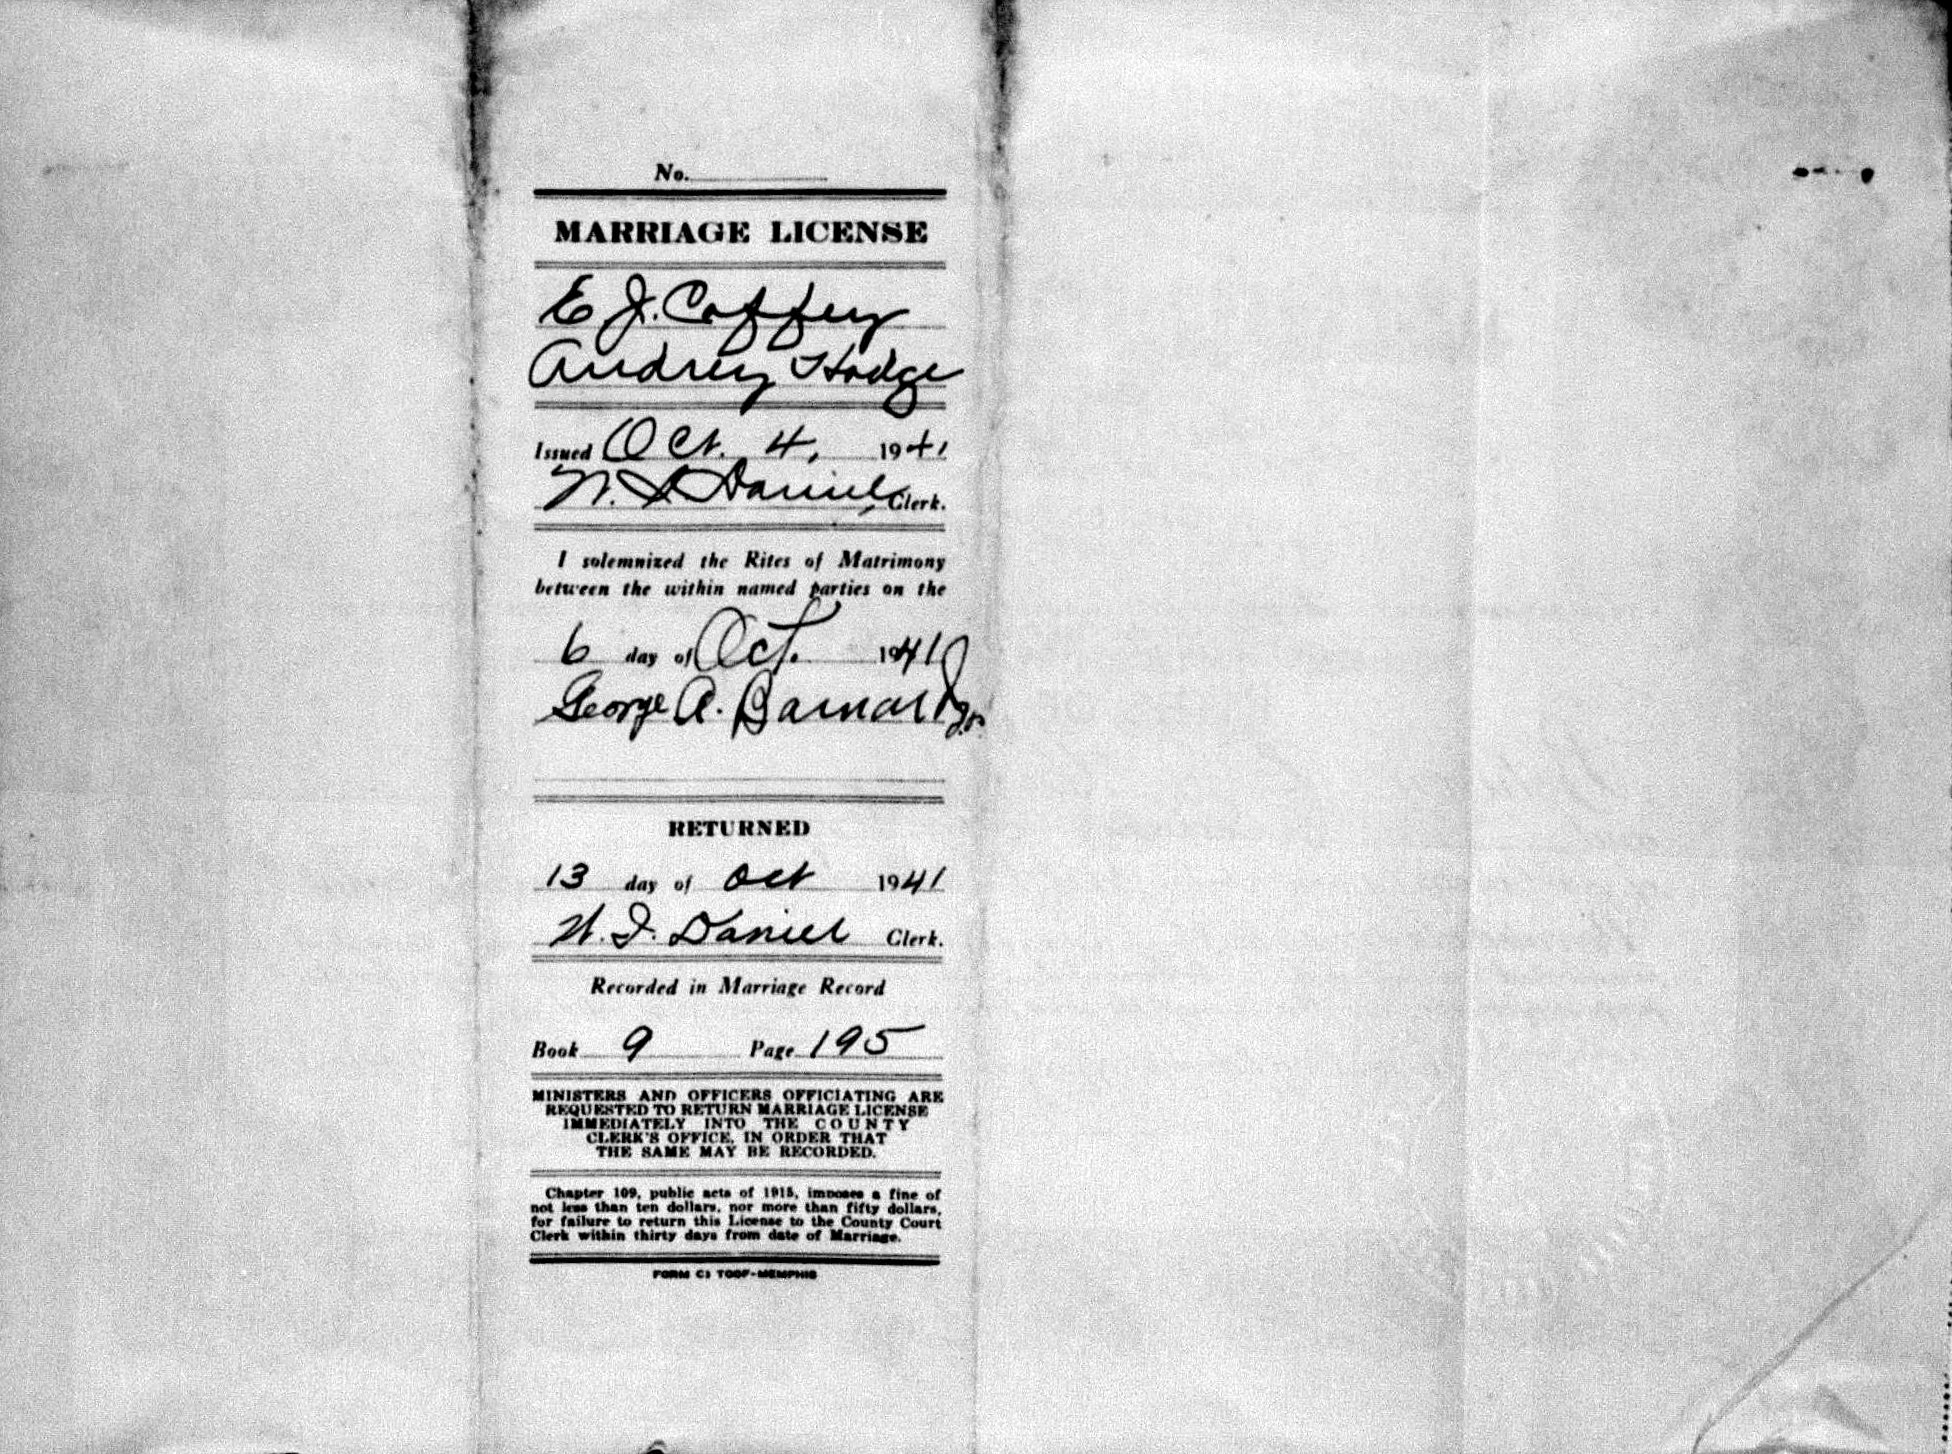 No.
MARRIAGE LICENSE
E. J. Coffey
Audrey Hodge
Issued Oct. 4, 1941
Daniel, Clerk.
I solemnized the Rites of Matrimony
between the within named parties on the
6 day of Oct. 1941
George A. Barnard Jr.
RETURNED
13 day of Oct 1941
Daniel Clerk.
Recorded in Marriage Record
Book 9 Page 195
MINISTERS AND OFFICERS OFFICIATING ARE
REQUESTED TO RETURN MARRIAGE LICENSE
IMMEDIATELY INTO THE COUNTY
CLERK'S OFFICE, IN ORDER THAT
THE SAME MAY BE RECORDED.
Chapter 109, public acts of 1915, imposes a fine of
not less than ten dollars, nor more than fifty dollars,
for failure to return this License to the County Court
Clerk within thirty days from date of Marriage.
FORM C: TOOF-MEMPHIS